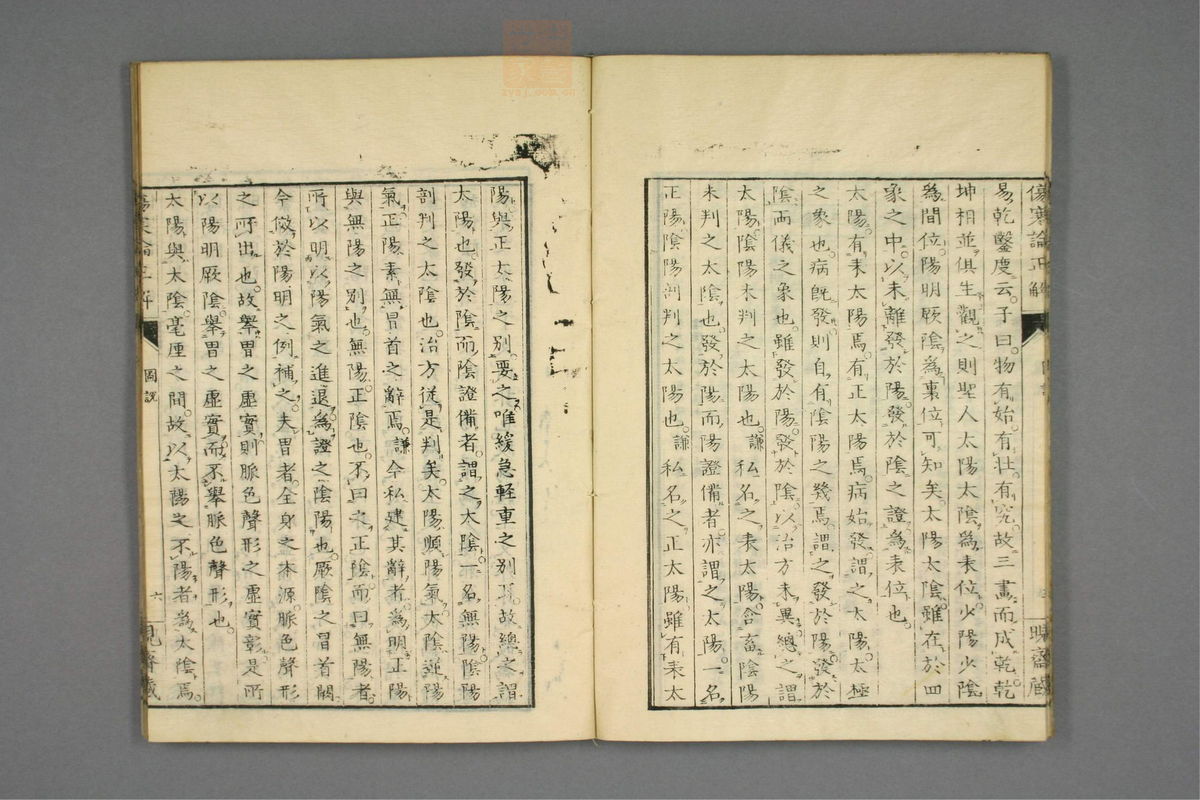 傷寒論正解
易乾鑿度云子曰物有始有壯有究故三畫而成乾乾
坤相並俱生觀之則聖人太陽太陰爲表位少陽少陰
爲間位陽明厥陰爲裏位可知矣太陽太陰雖在於四
象之中以未離發於陽發於陰之證爲表位也
太陽有未太陽焉有正太陽焉病始發謂之太陽太極
之象也病旣發則自有陰陽之幾焉謂之發於陽發於
陰兩儀之象也雖發於陽發於陰以治方未異總之謂
太陽陰陽未判之太陽也謙私名之未太陽含畜陰陽
未判之太陰也發於陽而陽證備者亦謂之太陽一名
正陽陰陽剖判之太陽也謙私名之正太陽雖有未太
陽與正太陽之別要之唯緩急輕重之別耳故總之謂
太陽也發於陰而陰證備者謂之太陰一名無陽陰陽
剖判之太陰也治方從是判矣太陽順陽氣太陰逆陽
氣正陽素無冒首之辭焉謙今私建其辭者爲明正陽
與無陽之別也無陽正陰也不曰之正陰而曰無陽者
所以明以陽氣之進退爲證之陰陽也厥陰之冒首闕
今倣於陽明之例補之夫胃者全身之本源脈色聲形
之所出也故擧胃之虛實則脈色聲形之虛實彰是所
以陽明厥陰擧胃之虛實而不擧脈色聲形也
太陽與太陰毫厘之間故以太陽之不陽者爲太陰焉
圖說
六